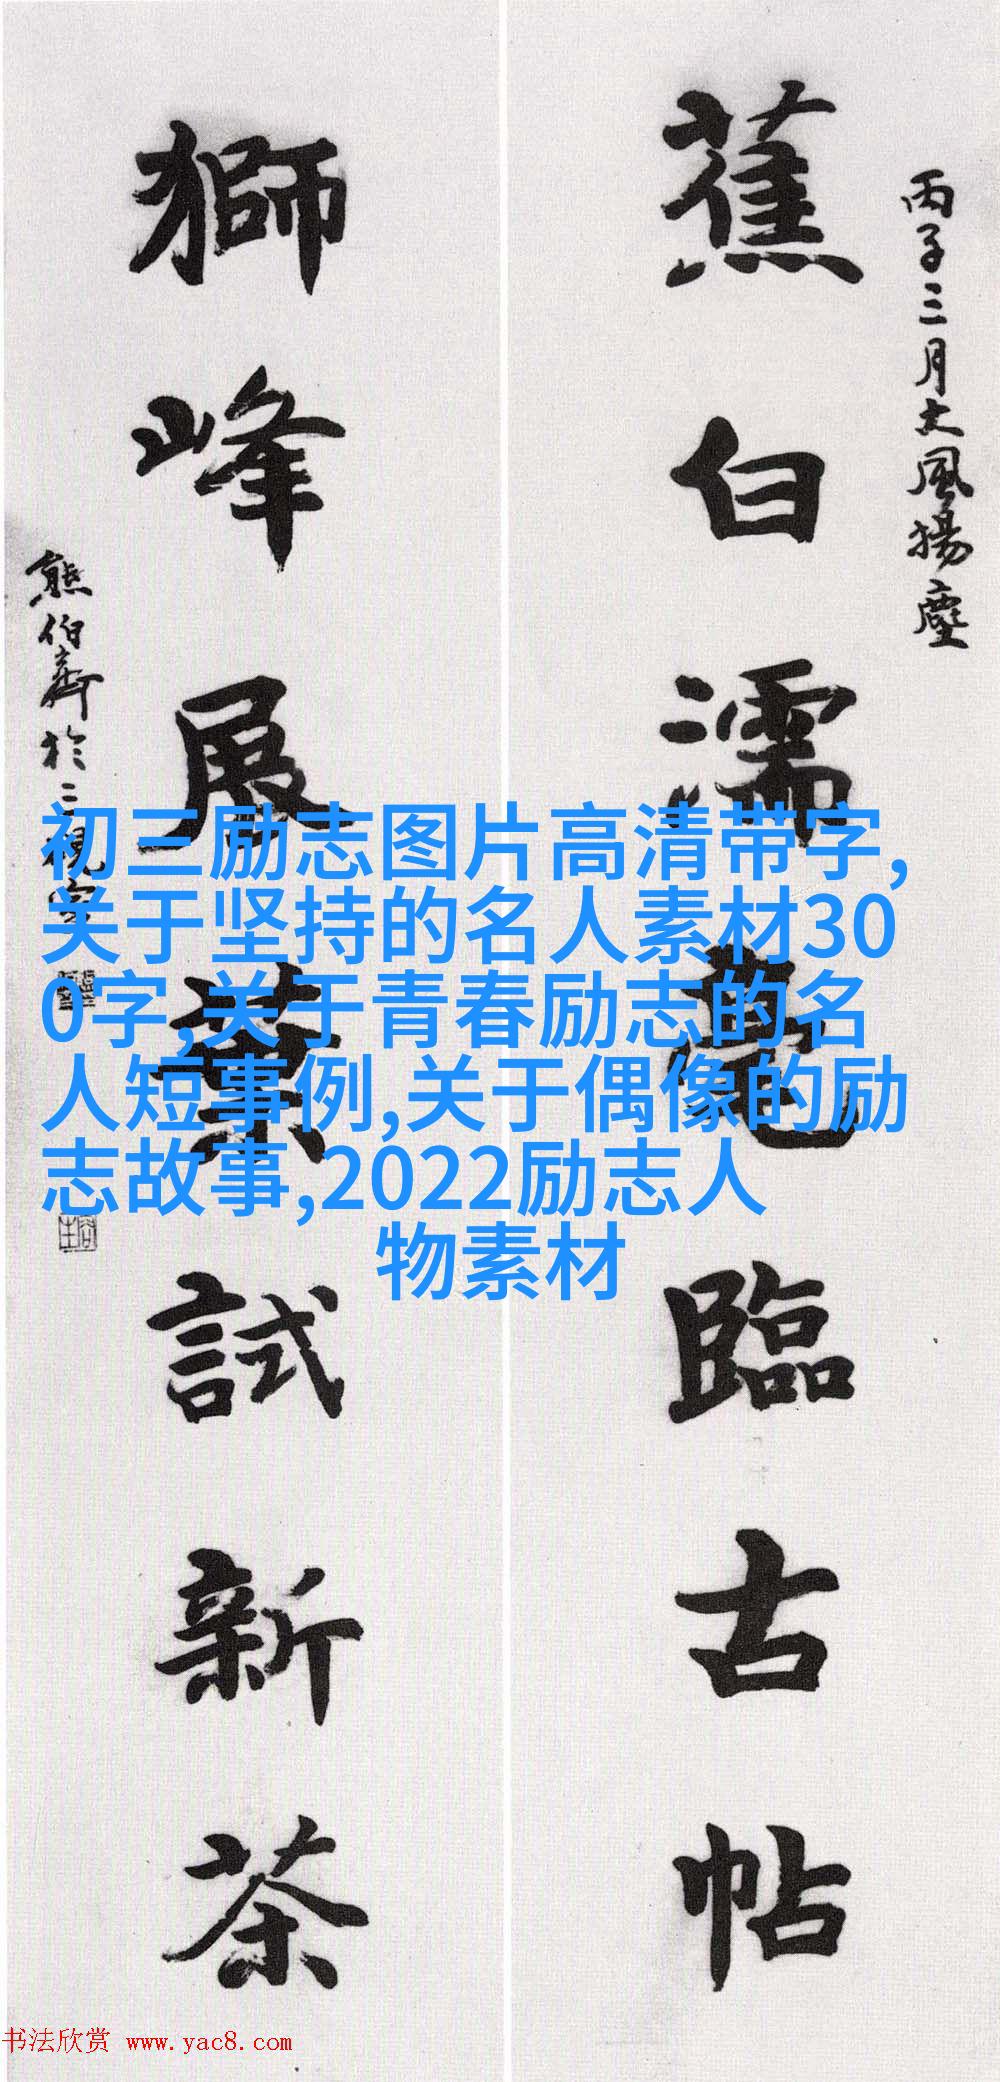 丙子三月大風揚塵
蕉白濡毫臨古帖
獅峰展葉試新茶
熊伯齊於二視室
初三励志图片高清带字,
关于坚持的名人素材30
0字,关于青春励志的名
人短事例,关于偶像的励
志故事,2022励志人
物素材
书法欣赏 www.yac8.com